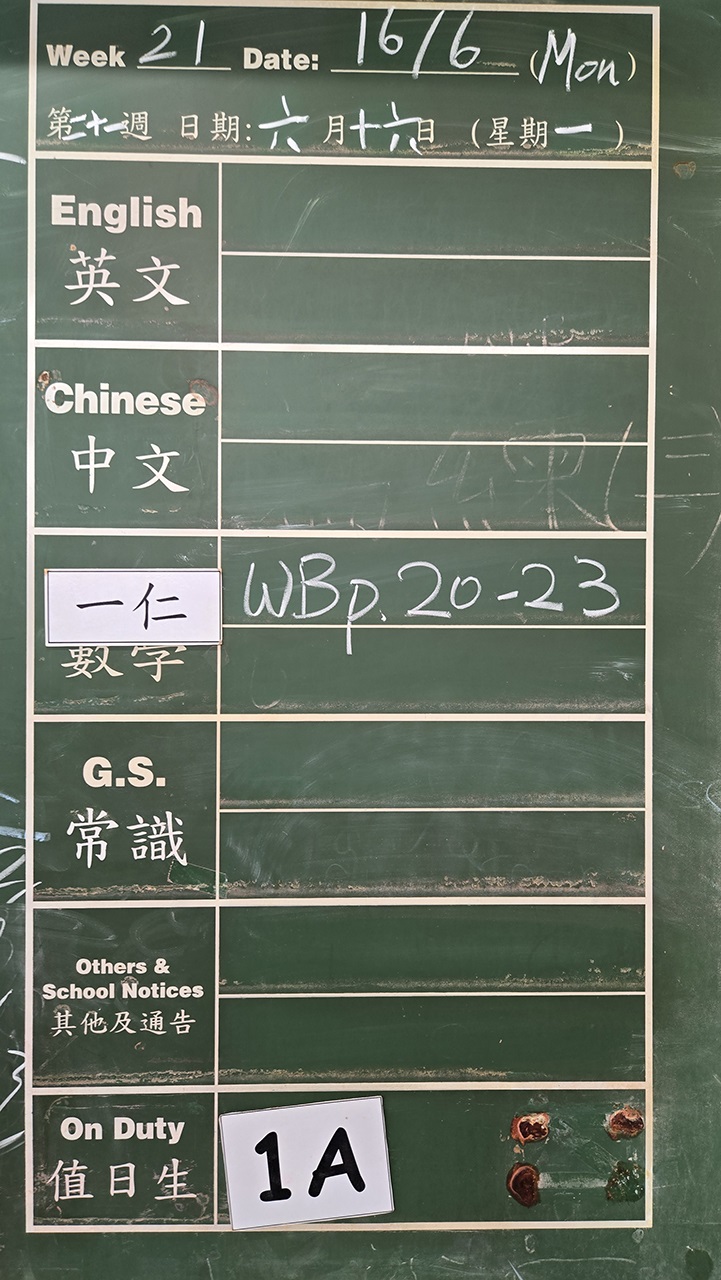 Week 21 Date: 16/6 (Mon)
第二十一週 日期: 六月十六日 (星期一)
English
英文
Chinese
中文
一仁
WBp.20-23
數學
G.S.
常識
Others &
School Notices
其他及通告
On Duty
值日生
1A